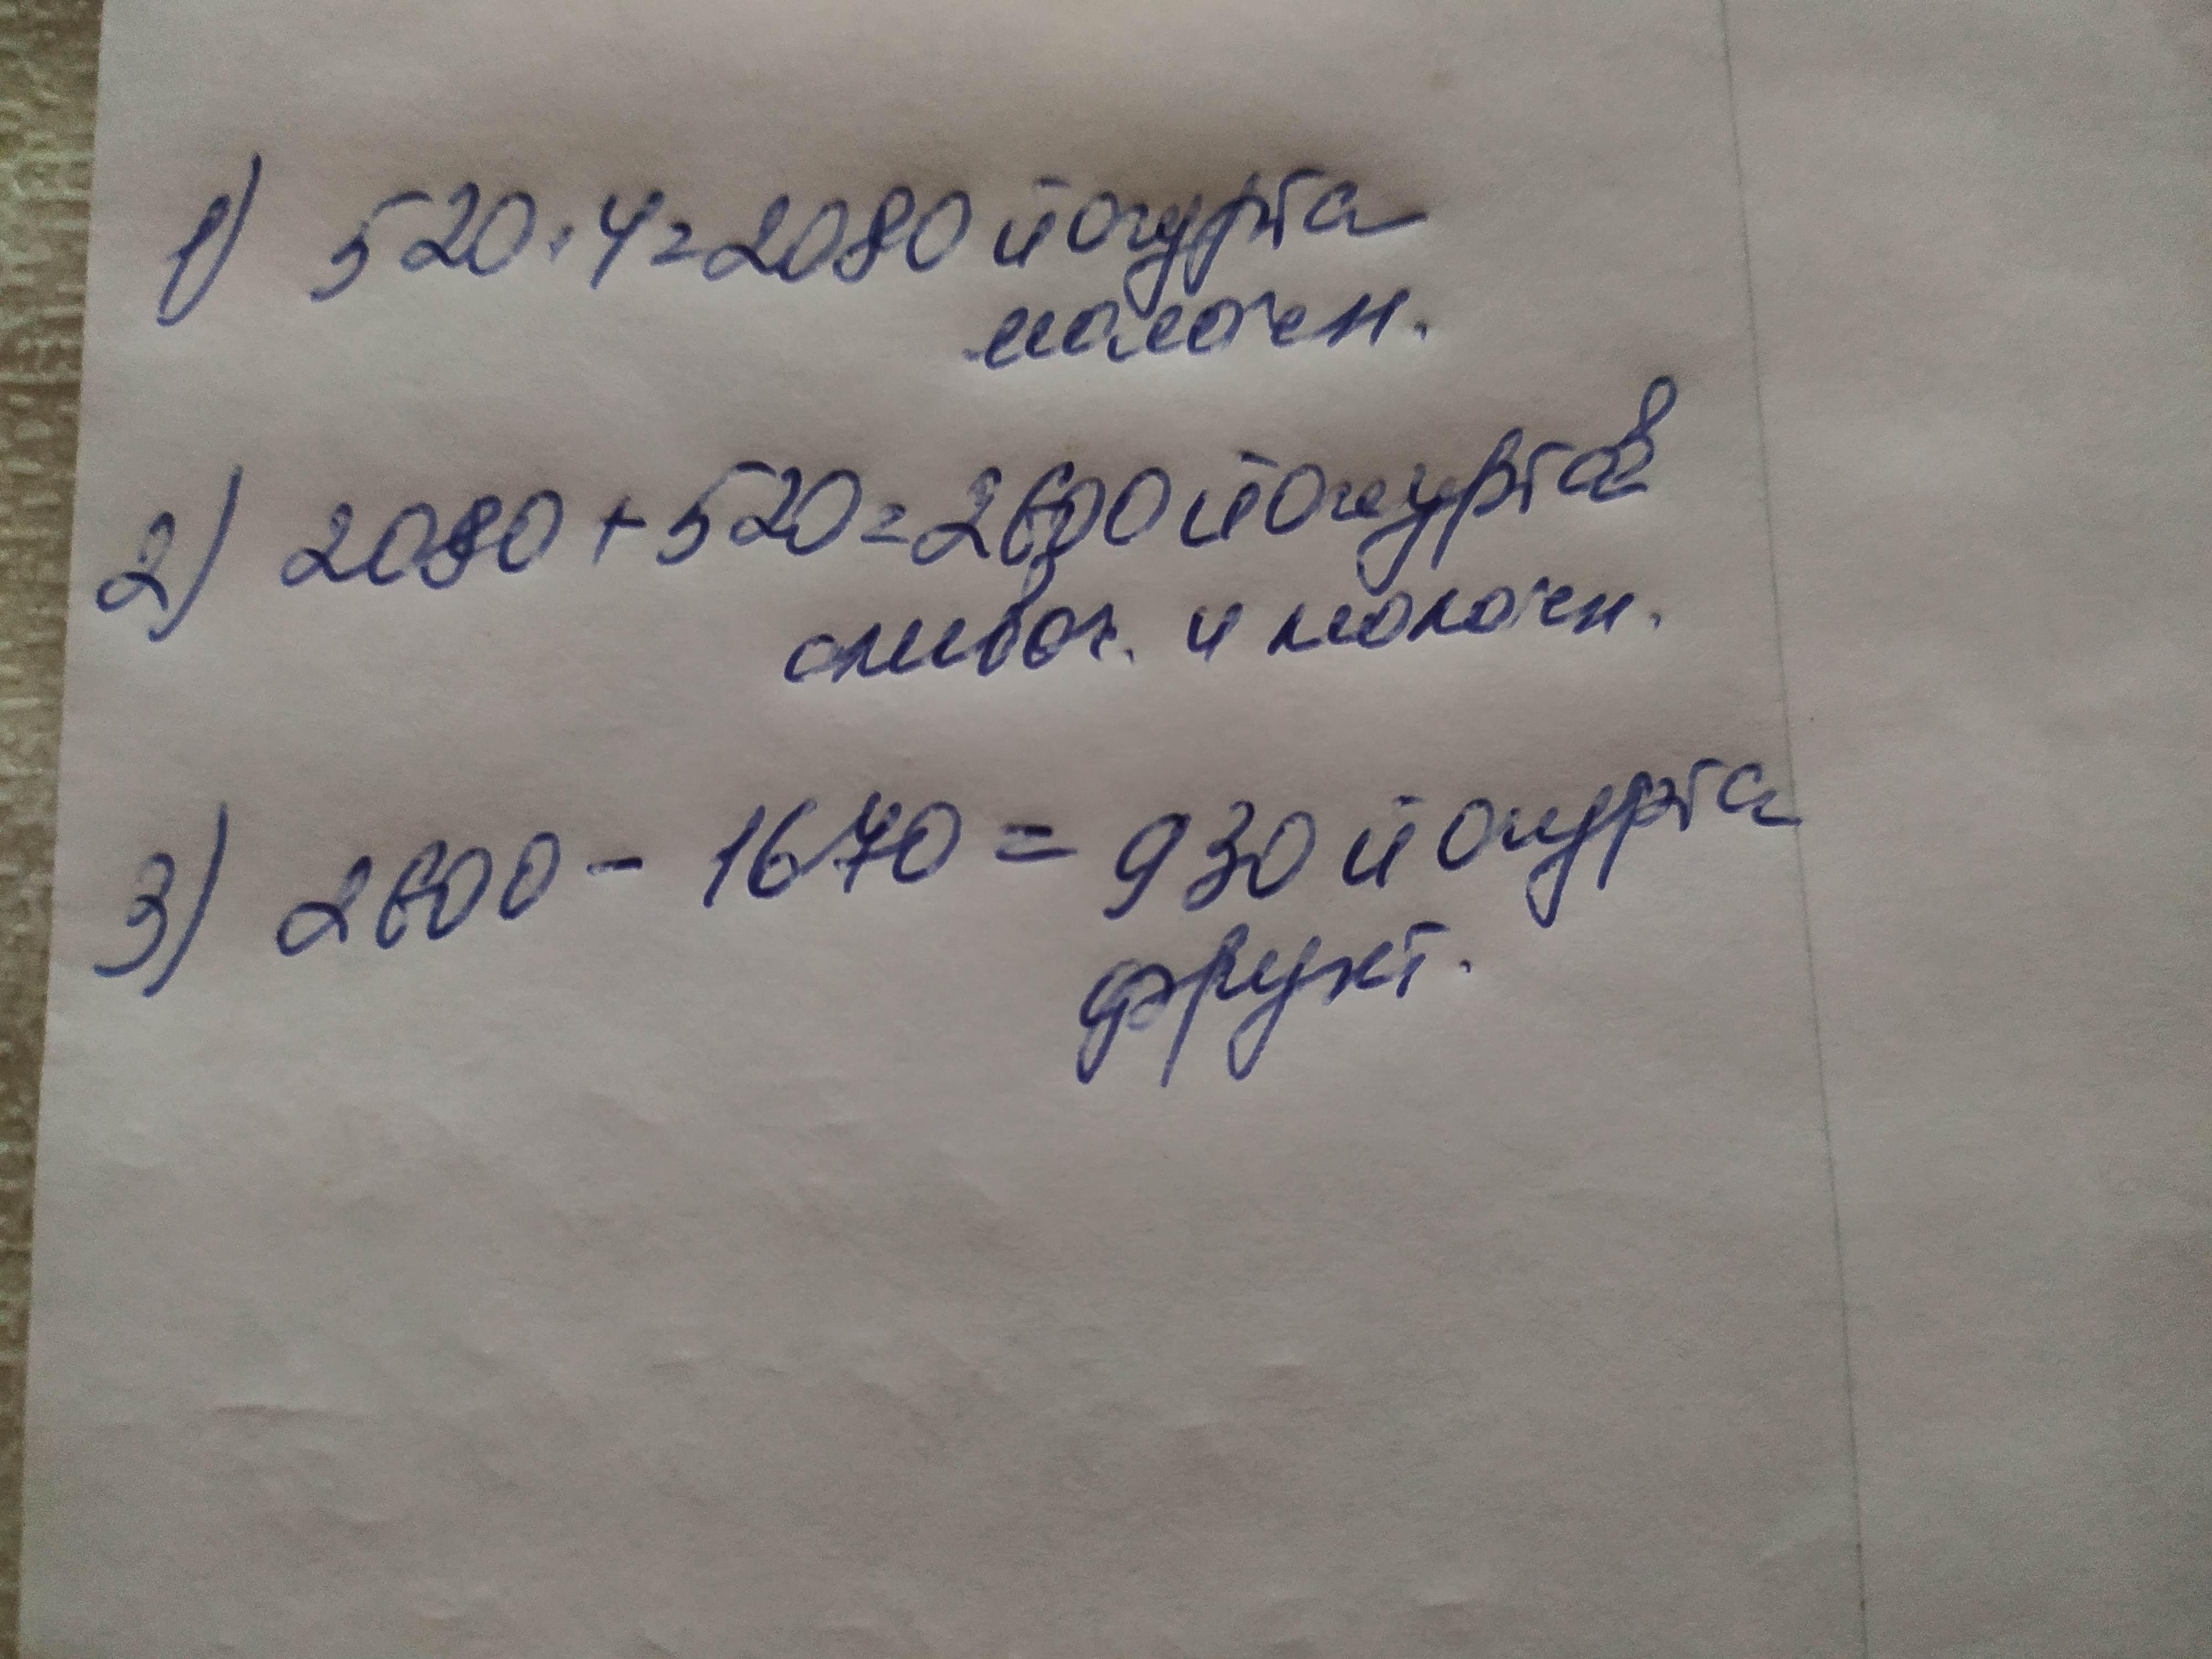 1) 520·4=2080 йогурта
молочн.
2) 2080+520=2600 йогуртов
сливоч. и молочн.
3) 2600 - 1670 = 930 йогурта
фрукт.